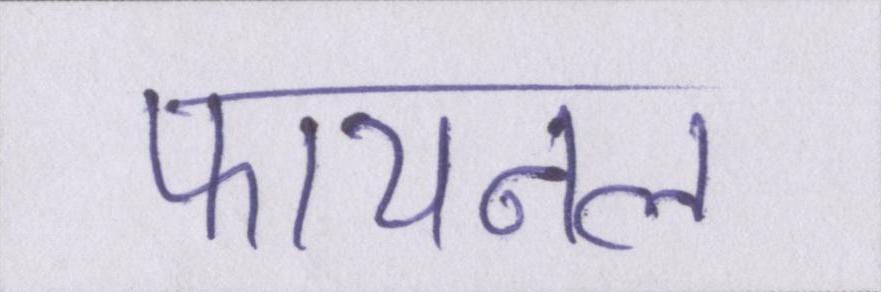 फायनल